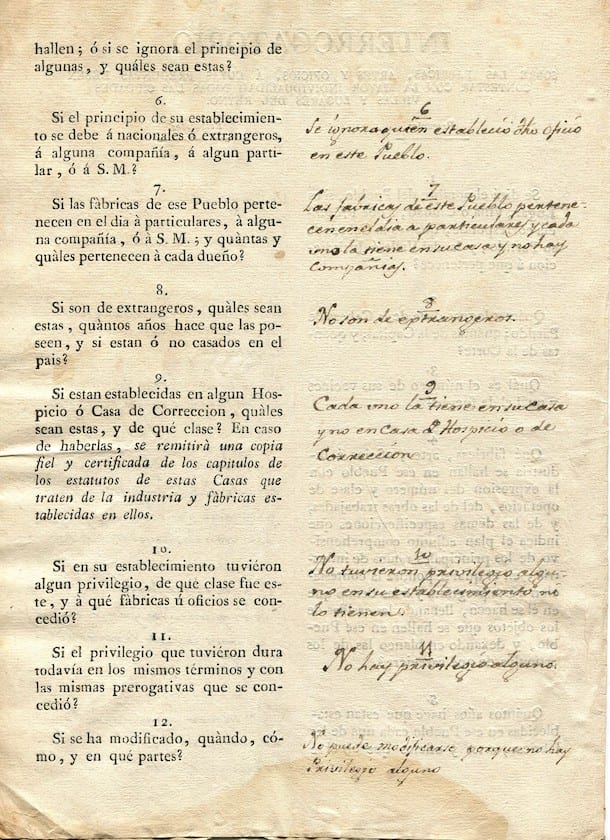 hallen ; ó si se ignora el principio de
algunas, y quáles sean estas?
6.
Si el principio de su establecimien-
to se debe á nacionales ó extrangeros,
á alguna compañía, á algun parti-
lar, ó á S. M.?
7.
Si las fàbricas de ese Pueblo perte-
necen en el dia à particulares, à algu-
na compañía, ó à S. M.; y quàntas y
quàles pertenecen à cada dueño?
8.
Si son de extrangeros, quàles sean
estas, quàntos años hace que las po-
seen, y si estan ó no casados en el
pais?
9.
Si estan establecidas en algun Hos-
picio ó Casa de Correccion, quàles
sean estas, y de qué clase? En caso
de haberlas, se remitirà una copia
fiel y certificada de los capitulos de
los estatutos de estas Casas que
traten de la industria y fàbricas es-
tablecidas en ellos.
10.
Si en su establecimiento tuviéron
algun privilegio, de qué clase fue es-
te, y à qué fàbricas ú oficios se con-
cedió?
11.
Si el privilegio que tuviéron dura
todavía en los mismos términos y con
las mismas prerogativas que se con-
cedió?
12.
Si se ha modificado, quàndo, có-
mo, y en qué partes?
6
Se ignora quien estableció dho oficio
en este Pueblo.
7
Las fabricas de este Pueblo pertene-
cen en el dia a particulares y cada
uno la tiene en su casa y no hay
Compañias.
8
No son de extrangeros.
9
Cada uno la tiene en su Casa
y no en Casa de Hospicio o de
Corrección
10
No tuvieron privilegio algu-
no en su establecimiento ni
lo tienen.
11
No hay privilegio alguno.
No puede modificarse porque no hay
Privilegio alguno